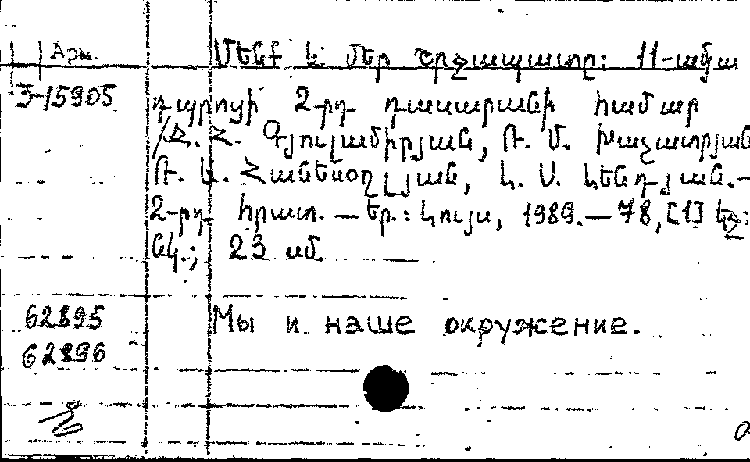 Арм. Մենք և մեր շրջապատը: 11-ամյա
Э-15905 դպրոցի 2-րդ դասարանի համար
/Հ. Հ. Գյուլամիրյան, Թ. Մ. Խաչատրյան
Թ. Ա. Հանեսօղլյան, Լ. Ս. Կենդյան.—
2-րդ հրատ. — Եր.: Լույս, 1989.— 78, [1] էջ:
նկ.; 23 սմ.
62895 Мы и наше окружение.
62896